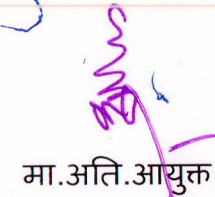 मा.अति.आयुक्त